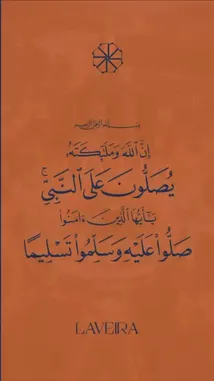 بسم الله الرحمن الرحيم
إِنَّ ٱللَّهَ وَمَلَـٰٓئِكَتَهُۥ
يُصَلُّونَ عَلَى ٱلنَّبِىِّ ۚ
يَـٰٓأَيُّهَا ٱلَّذِينَ ءَامَنُوا۟
صَلُّوا۟ عَلَيْهِ وَسَلِّمُوا۟ تَسْلِيمًا
LAVEIRA